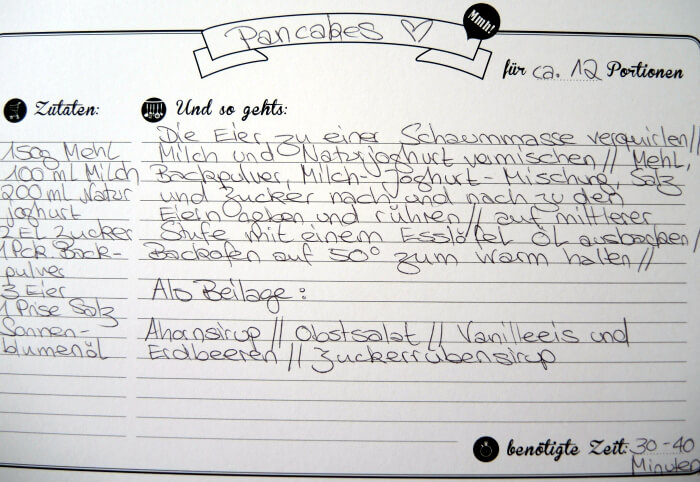 Pancakes ♡
Mmh!
für ca. 12 Portionen
Zutaten:
150g Mehl
100 ml Milch
200 ml Natur
joghurt
2 EL Zucker
1 Pck Back-
pulver
3 Eier
1 Prise Salz
Sonnen-
blumenöl
Und so gehts:
Die Eier zu einer Schaummasse verquirlen//
Milch und Naturjoghurt vermischen // Mehl,
Backpulver, Milch-Joghurt-Mischung, Salz
und Zucker nach und nach zu den
Eiern geben und rühren // auf mittlerer
Stufe mit einem Esslöffel Öl ausbacken //
Backofen auf 50° zum Warm halten //
Als Beilage:
Ahornsirup // Obstsalat // Vanilleeis und
Erdbeeren // Zuckerrübensirup
benötigte Zeit: 30-40
Minuten